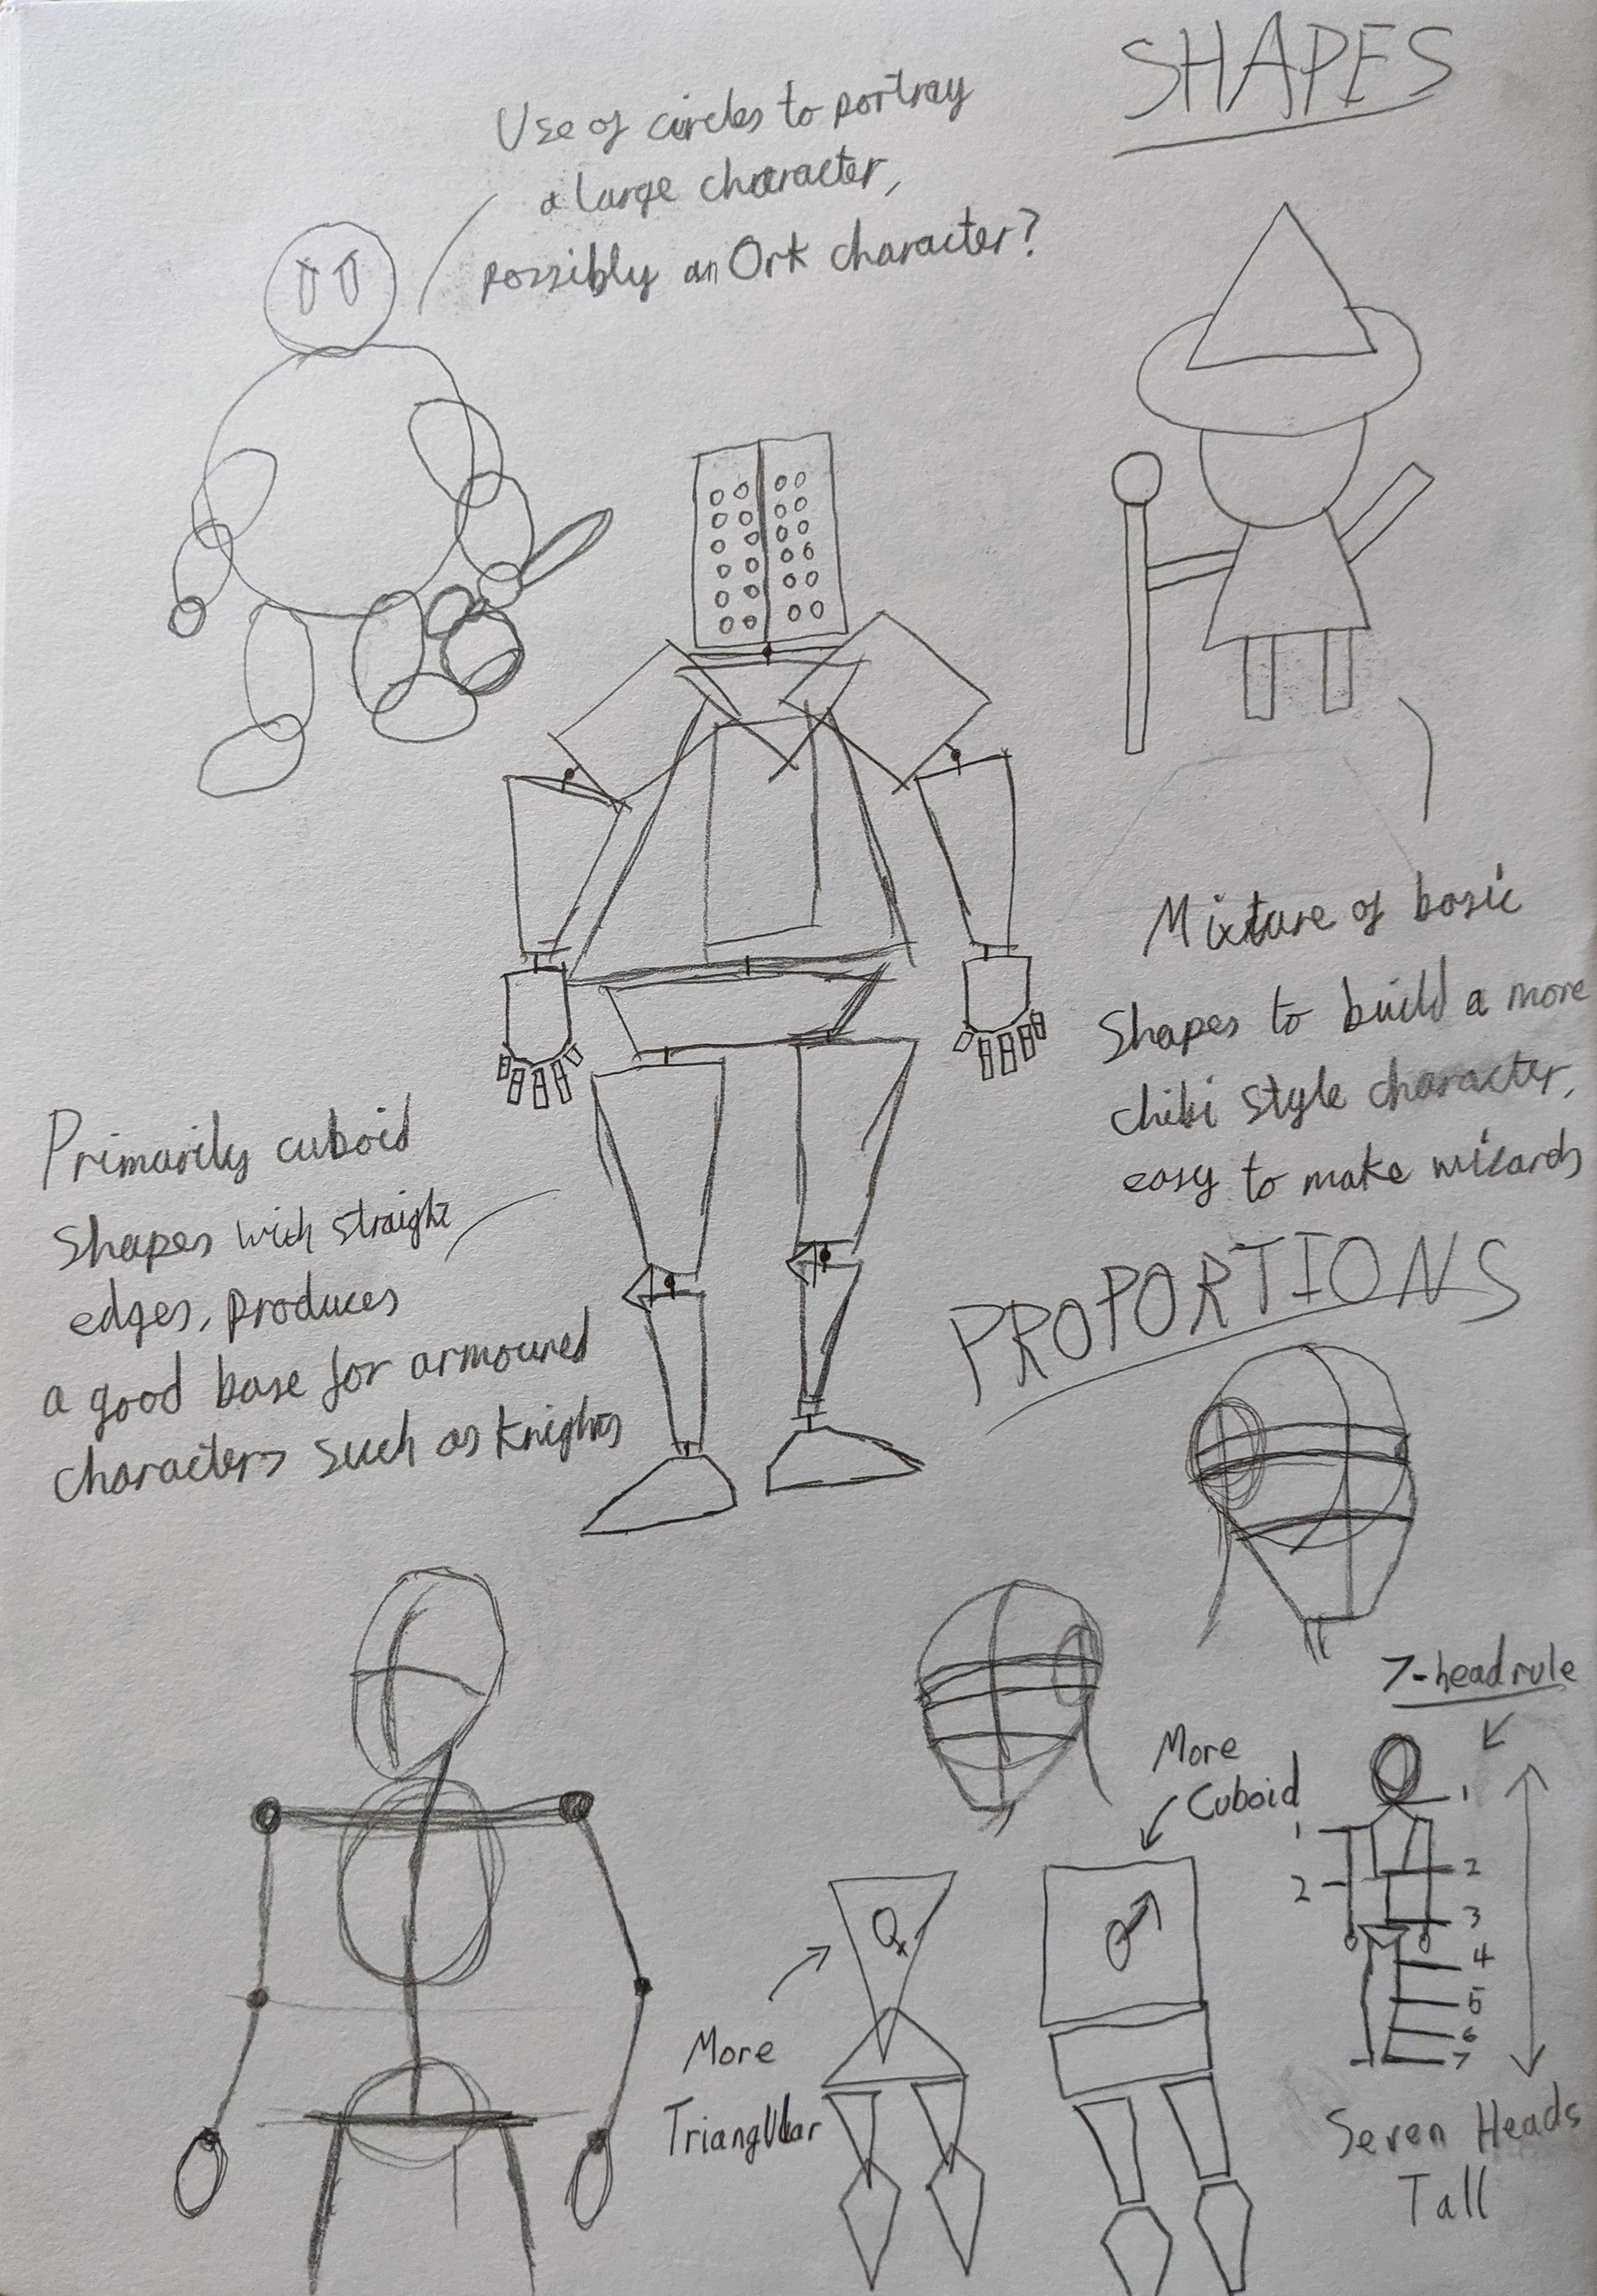 SHAPES
Use of circles to portray
a large character,
possibly an Ork character?
Mixture of basic
shapes to build a more
chibi style character,
easy to make wizards
Primarily cuboid
shapes with straight
edges, produces
a good base for armoured
characters such as knights
PROPORTIONS
7-head rule
More
Cuboid
1
1
2
2
3
4
5
6
7
♀
♂
More
Triangular
Seven Heads
Tall